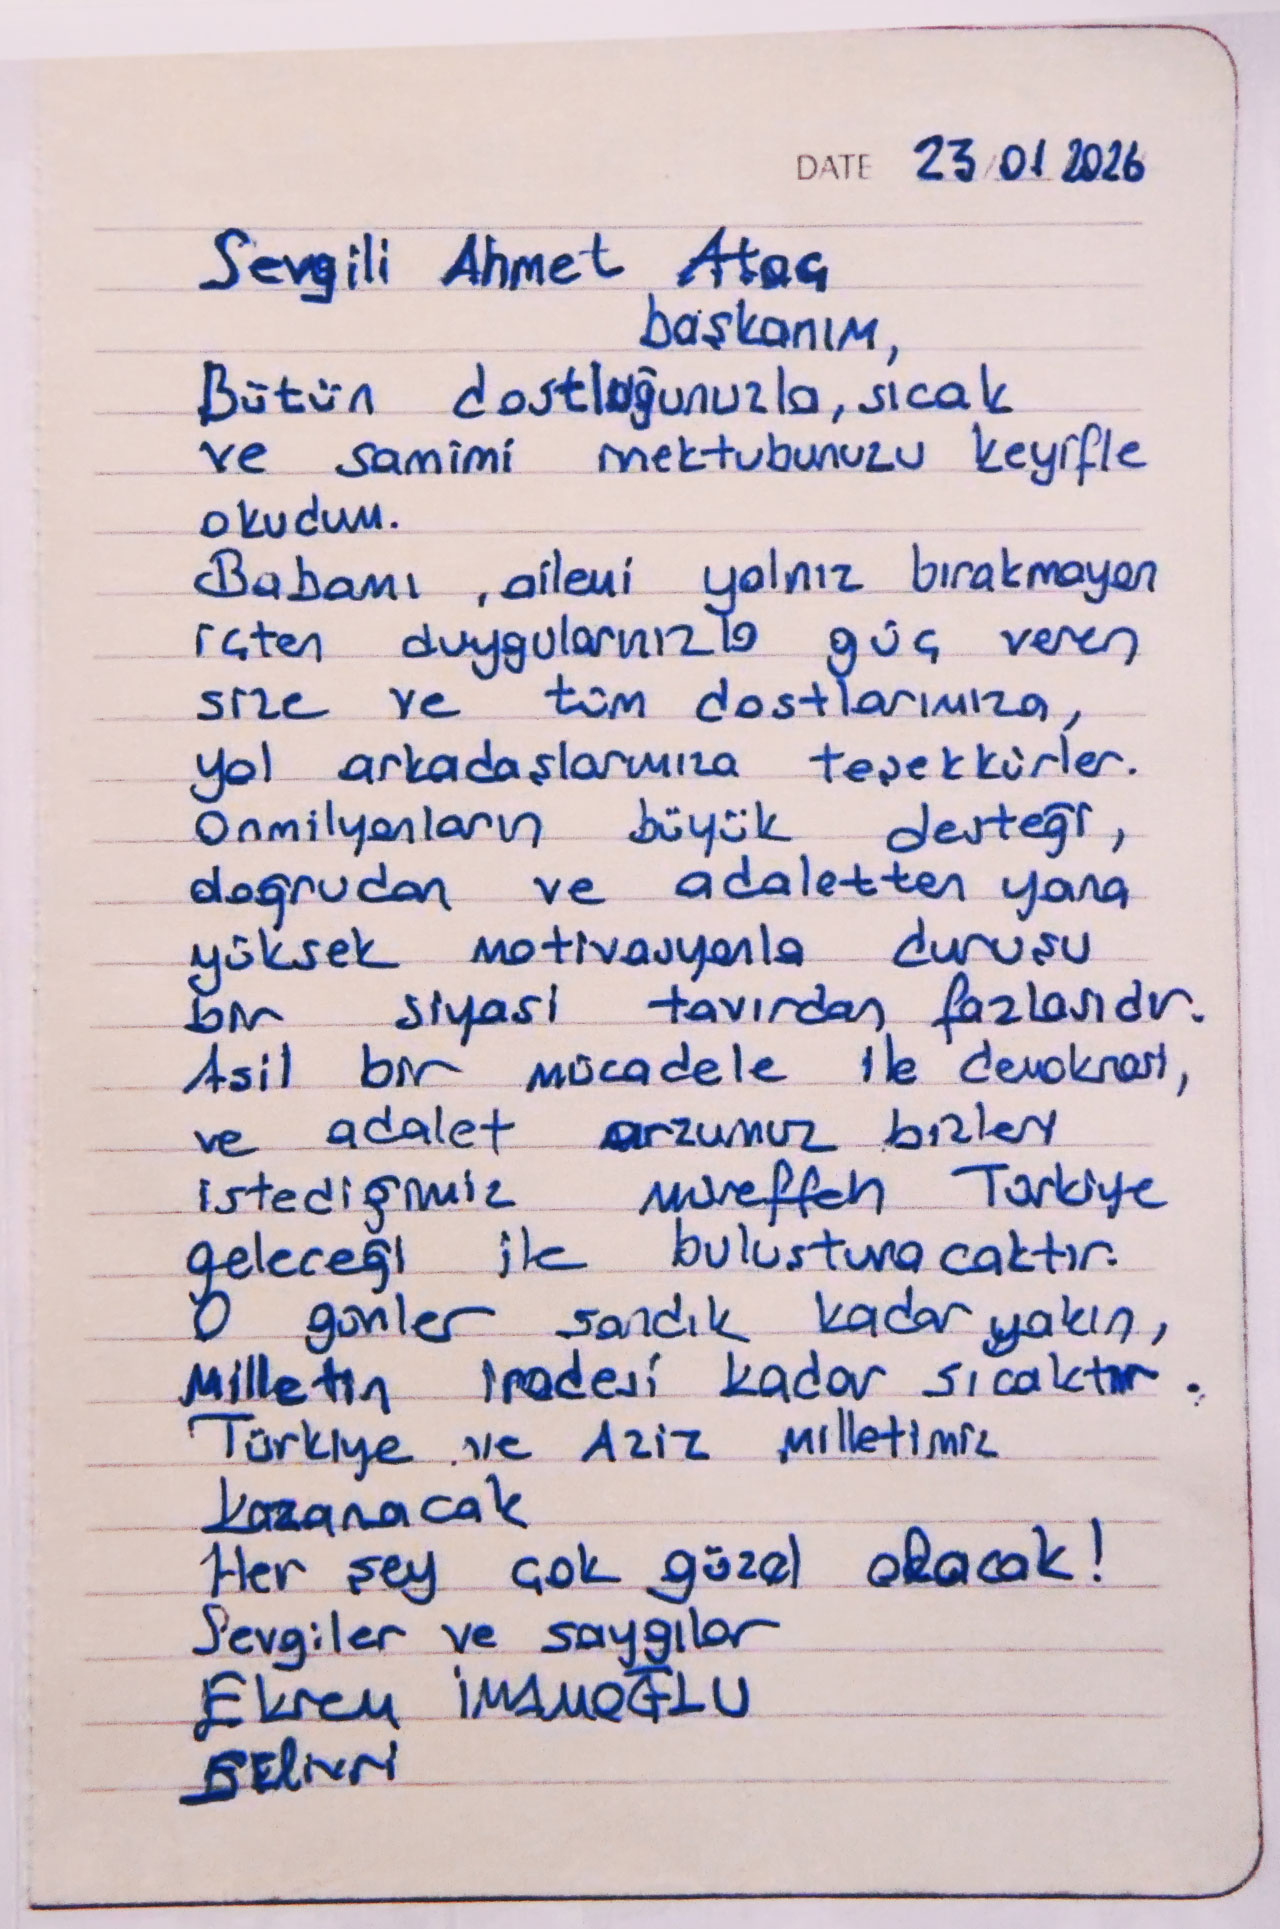 DATE 23/01 2026
Sevgili Ahmet Ataç
başkanım,
Bütün dostluğunuzla, sıcak
ve samimi mektubunuzu keyifle
okudum.
Babamı, ailemi yalnız bırakmayan
içten duygularınızla güç veren
size ve tüm dostlarımıza,
yol arkadaşlarımıza teşekkürler.
Onmilyonların büyük desteği,
doğrudan ve adaletten yana
yüksek motivasyonla duruşu
bir siyasi tavırdan fazlasıdır.
Asil bir mücadele ile demokrasi,
ve adalet arzumuz bizleri
istediğimiz müreffeh Türkiye
geleceği ile buluşturacaktır.
O günler sandık kadar yakın,
Milletin iradesi kadar sıcaktır.
Türkiye ve Aziz milletimiz
kazanacak
Her şey çok güzel olacak!
Sevgiler ve saygılar
Ekrem İMAMOĞLU
Silivri